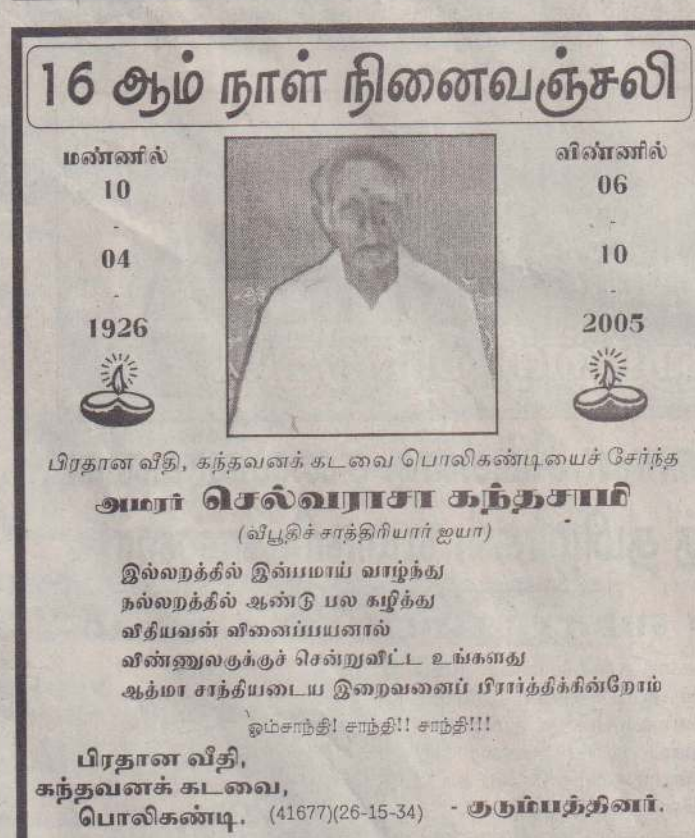 16 ஆம் நாள் நினைவஞ்சலி
மண்ணில்
10
-
04
-
1926
விண்ணில்
06
-
10
-
2005
பிரதான வீதி, கந்தவனக் கடவை பொலிகண்டியைச் சேர்ந்த
அமரர் செல்வராசா கந்தசாமி
(வீபூதிச் சாத்திரியார் ஐயா)
இல்லறத்தில் இன்பமாய் வாழ்ந்து
நல்லறத்தில் ஆண்டு பல கழித்து
விதியவன் வினைப்பயனால்
விண்ணுலகுக்குச் சென்றுவிட்ட உங்களது
ஆத்மா சாந்தியடைய இறைவனைப் பிரார்த்திக்கின்றோம்
ஓம்சாந்தி! சாந்தி!! சாந்தி!!!
பிரதான வீதி,
கந்தவனக் கடவை,
பொலிகண்டி. (41677)(26-15-34) - குடும்பத்தினர்.